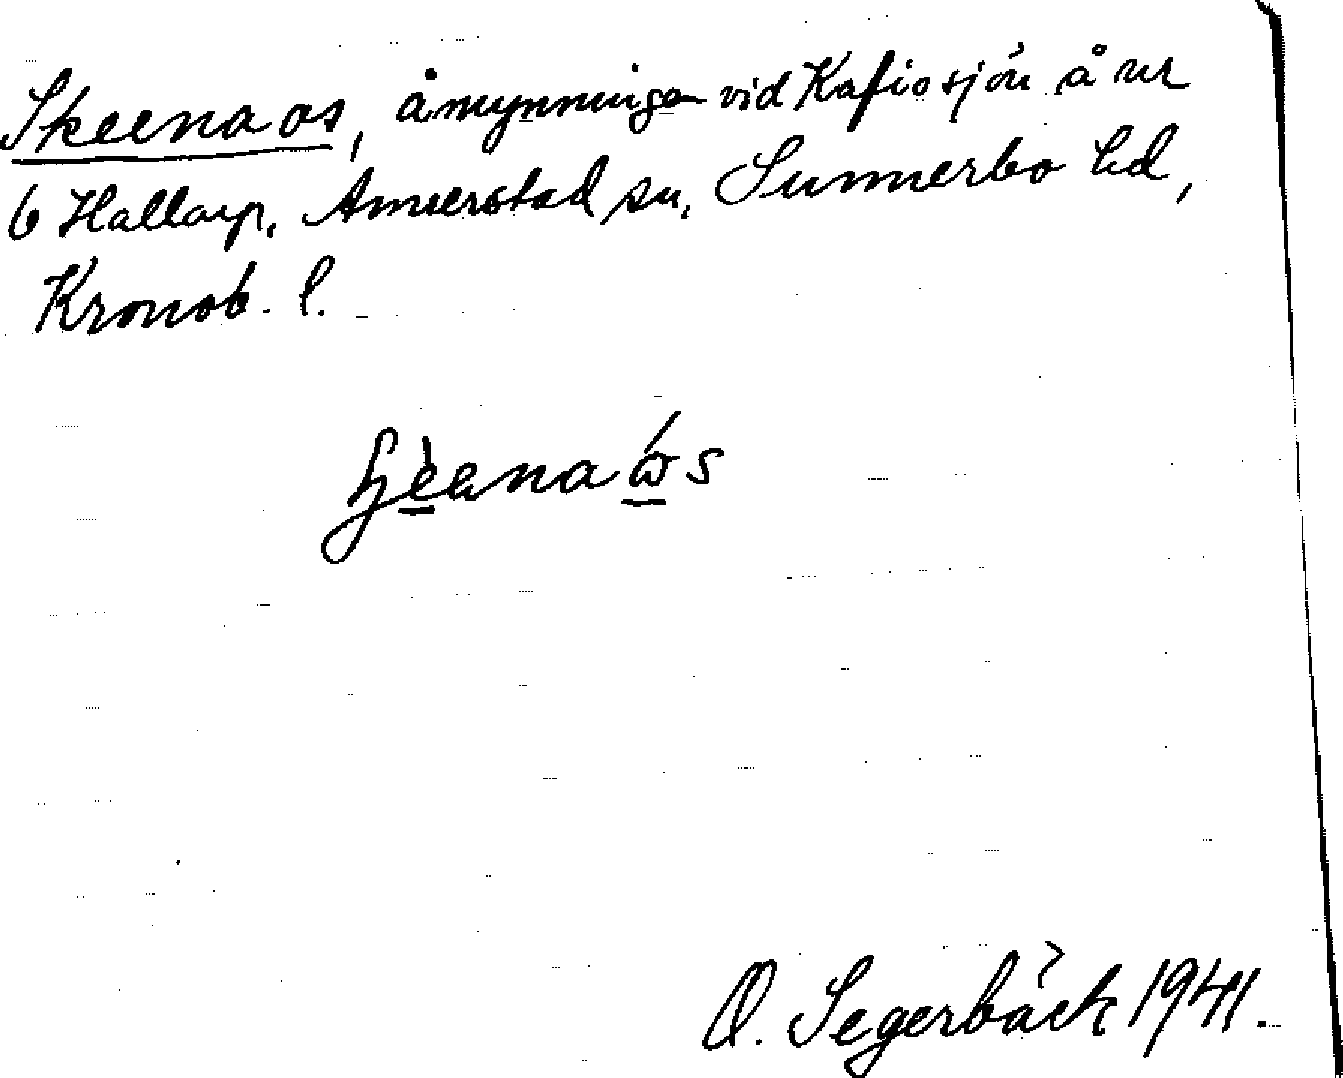 Skeena os, åmynningen vid Kafiosjön å nr
6 Hallarp. Annerstad sn, Sunnerbo hd,
Kronob. l.
O. Segerbäck 1941.